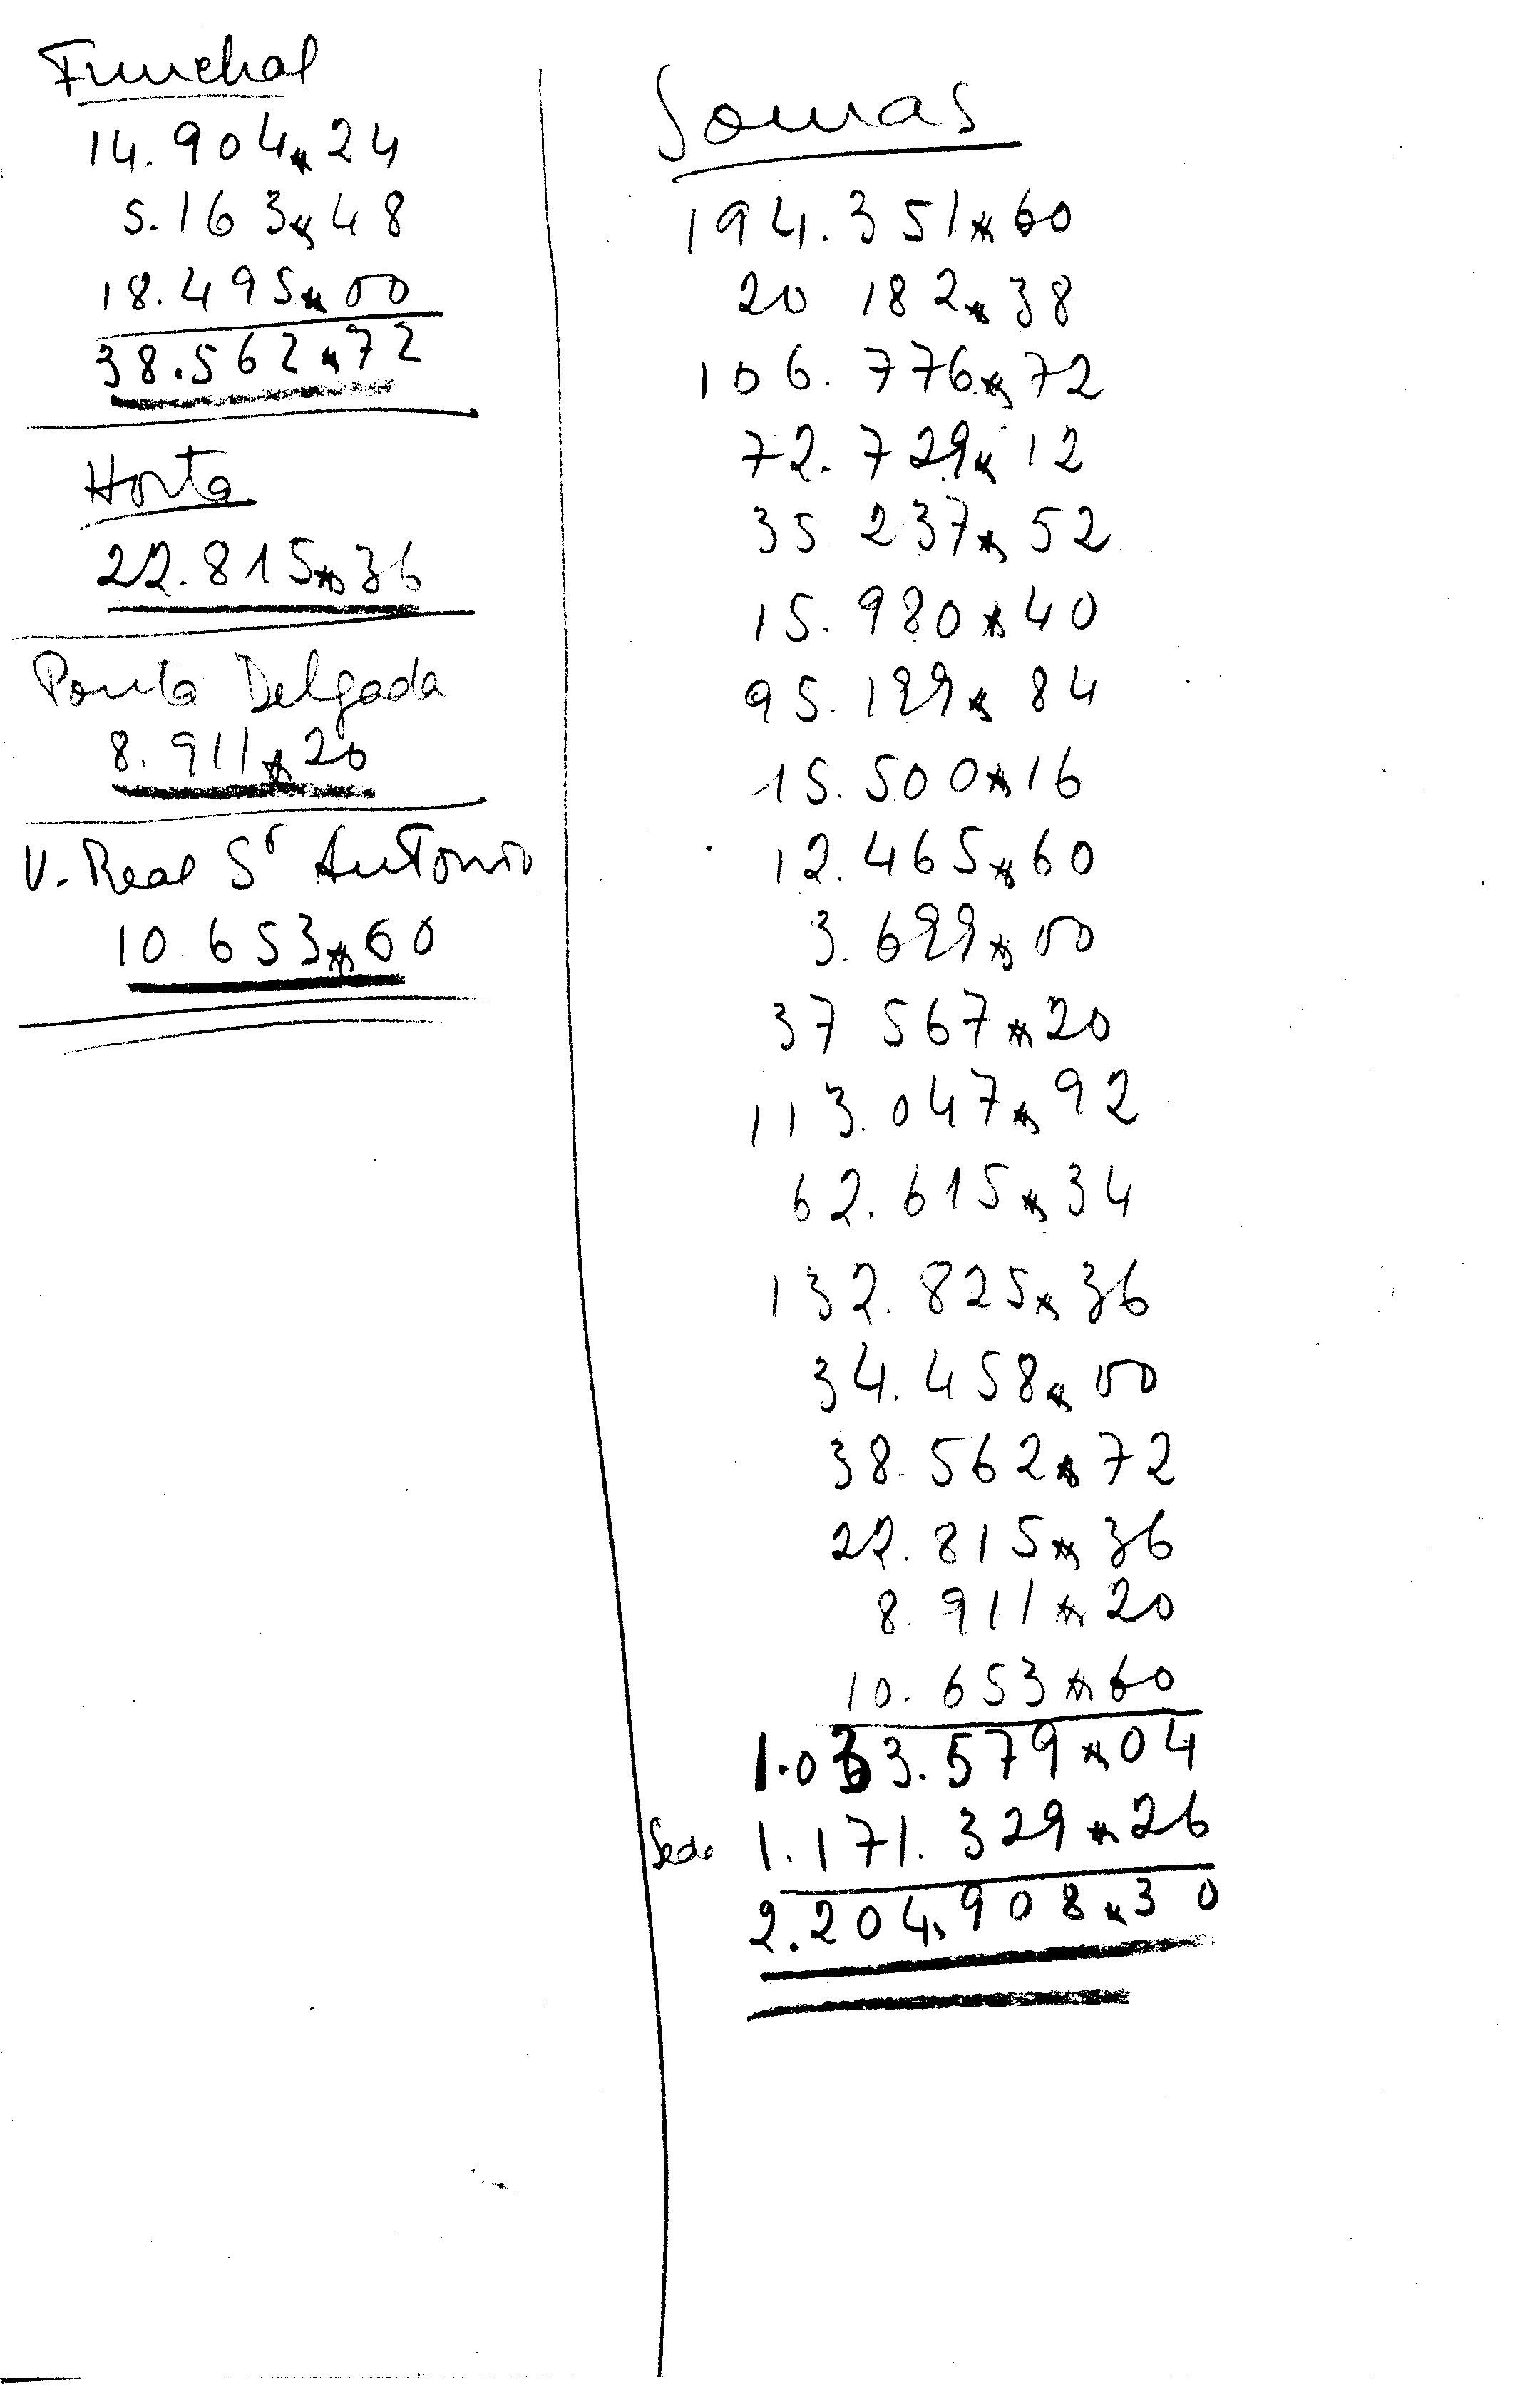 Funchal
14.904$24
5.163$48
18.495$00
38.562$72
Horta
22.815$36
Ponta Delgada
8.911$20
V. Real Stº António
10.653$60
Somas
194.351$60
20 182$38
106.776$72
72.729$12
35 237$52
15.980$40
95.199$84
15.500$16
12.465$60
3.699$00
37 567$20
113.047$92
62.615$34
132.825$36
34.458$00
38.562$72
22.815$36
8.911$20
10.653$60
1.033.579$04
Sede 1.171.329$26
2.204.908$30